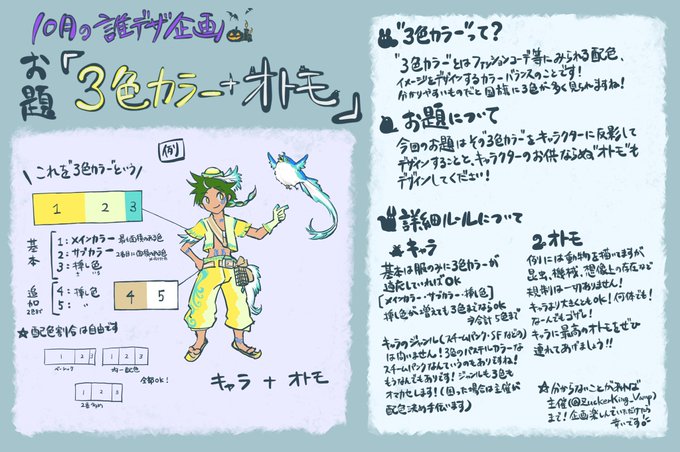 10月の誰デザ企画
お題
「3色カラー+オトモ」
例
これを"3色カラー"という
1 2 3
基本
1:メインカラー 最も面積のある色
2:サブカラー 2番目に面積のある色
3:挿し色
追加
2色まで
4:挿し色
5: 〃
4 5
☆配色割合は自由です
1 2 3
ベーシック
1 2 3
均一配色
1 2 3
2色多め
全部OK!
キャラ + オトモ
"3色カラー"って?
"3色カラー"とはファッションコーデ等にみられる配色、
イメージをデザインするカラーバランスのことです!
分かりやすいものだと国旗に3色が多く見られますね!
お題について
今回のお題はその"3色カラー"をキャラクターに反映して
デザインすることと、キャラクターのお供ならぬ"オトモ"も
デザインしてください!
詳細ルールについて
キャラ
基本は服のみに3色カラーが
適応していればOK
[メインカラー・サブカラー・挿し色]
挿し色が増えても3色までならOK
キャラのジャンル(スチームパンク・SFなどの)
は問いません!3色のパステルカラーな
スチームパンクなんていうのもありますね!
もうなんでもありです!ジャンルも3色も
オマカセします!(困った場合は主催が
配色決め手伝います)
2.オトモ
例には動物を描いてますが
昆虫、機械、想像上の存在など
規制は一切ありません!
キャラより大きくともOK!何体でも!
なんでもござれ!
キャラに最高のオトモをぜひ
連れてあげましょう!!
☆分からないことがあれば
主催(@ZuckerKing_Vamp)
まで!企画楽しんでいただけたら
幸いです!